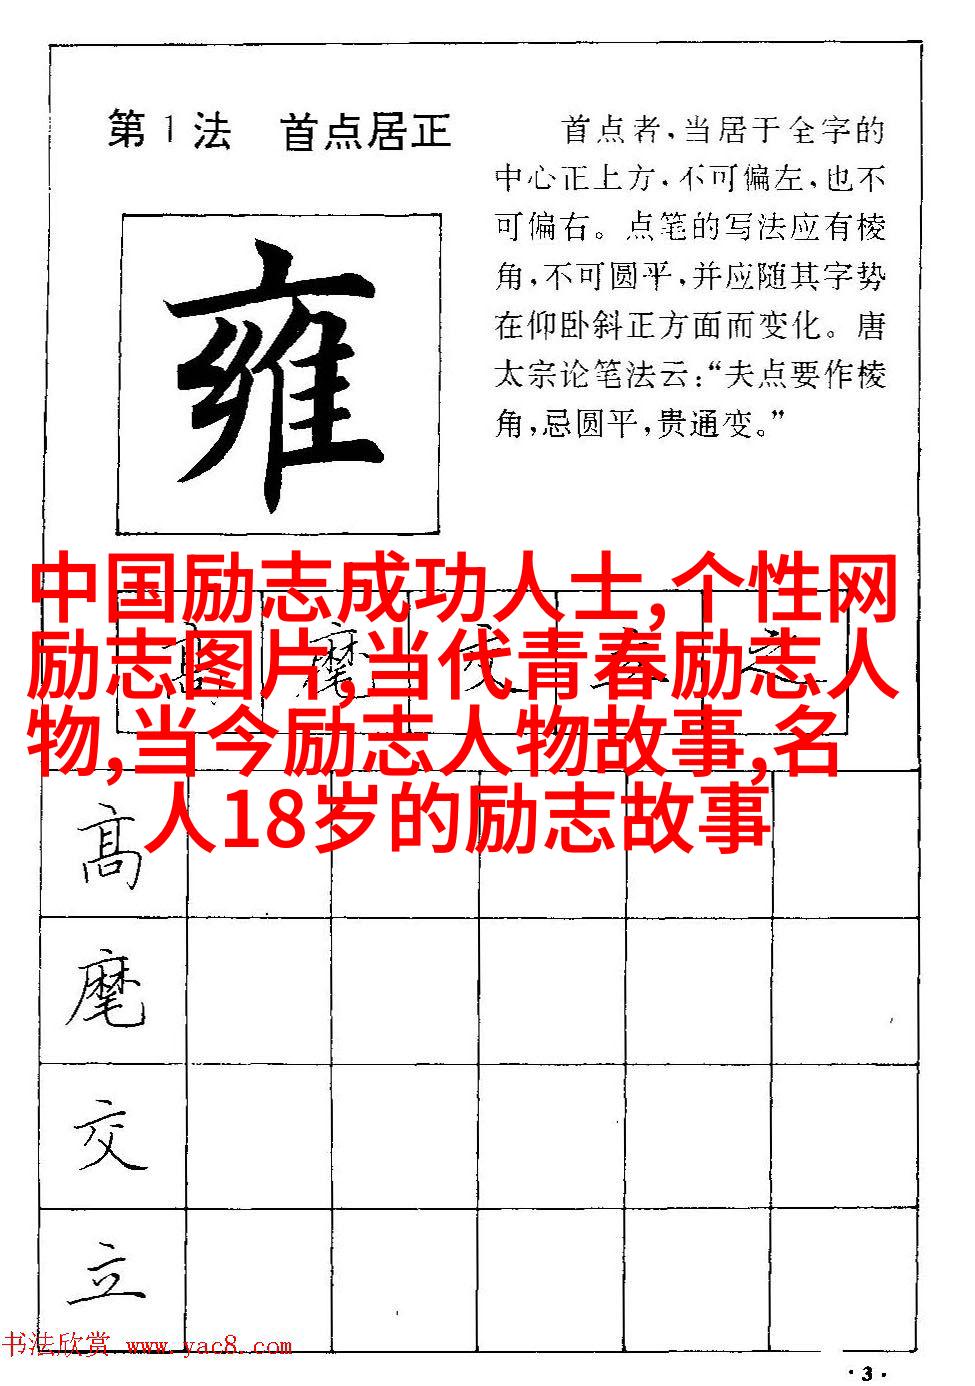 第1法 首点居正
首点者,当居于全字的
中心正上方,不可偏左,也不
可偏右。点笔的写法应有棱
角,不可圆平,并应随其字势
在仰卧斜正方面而变化。唐
太宗论笔法云:“夫点要作棱
角,忌圆平,贵通变。”
雍
中国励志成功人士,个性网
励志图片,当代青春励志人
物,当今励志人物故事,名
人18岁的励志故事
高
麾
交
立
书法欣赏 www.yac8.com
·3·